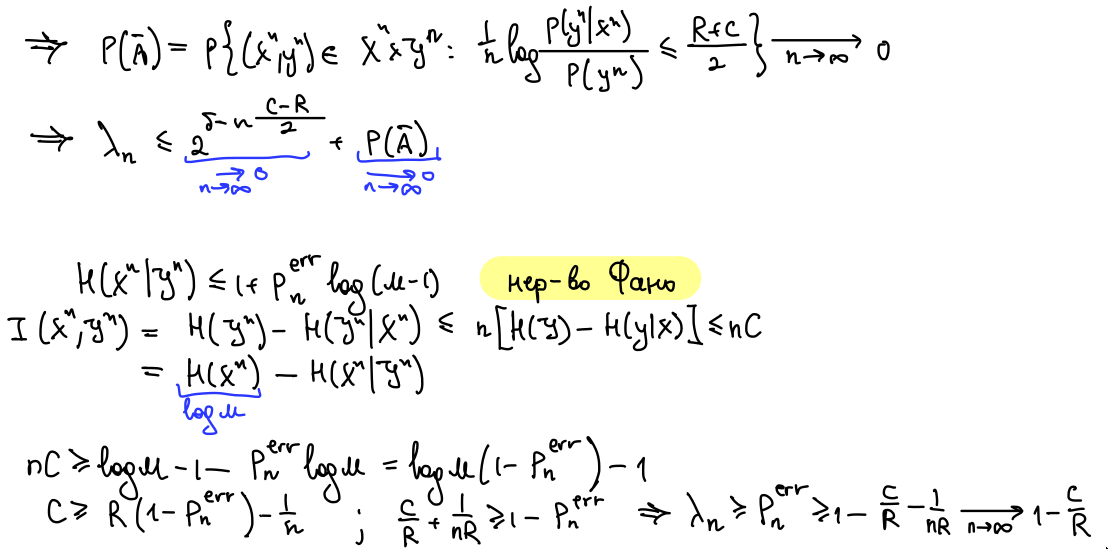 ⇒ P(Ā) = P{(x^n, y^n) ∈ X^n × Y^n : 1/n log P(y^n|x^n)/P(y^n) ≤ (R+C)/2} → 0 n→∞
⇒ λ_n ≤ 2^(δ-n (C-R)/2) + P(Ā)
→ 0 n→∞ → 0 n→∞
H(X^n|Y^n) ≤ 1 + P_n^err log(M-1) нер-во Фано
I(X^n, Y^n) = H(Y^n) - H(Y^n|X^n) ≤ n[H(Y) - H(Y|X)] ≤ nC
= H(X^n) - H(X^n|Y^n)
log M
nC ≥ log M - 1 - P_n^err log M = log M (1 - P_n^err) - 1
C ≥ R(1 - P_n^err) - 1/n ; C/R + 1/nR ≥ 1 - P_n^err ⇒ λ_n ≥ P_n^err ≥ 1 - C/R - 1/nR → 1 - C/R n→∞